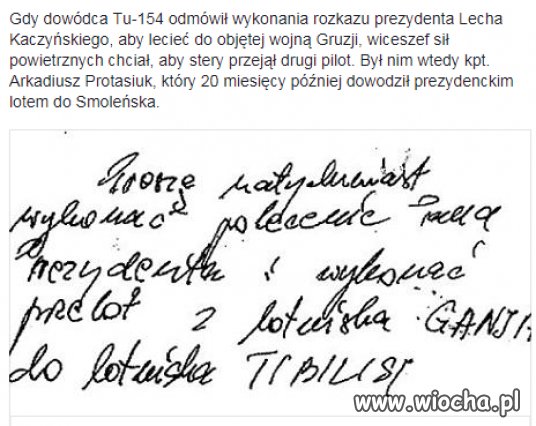 Gdy dowódca Tu-154 odmówił wykonania rozkazu prezydenta Lecha
Kaczyńskiego, aby lecieć do objętej wojną Gruzji, wiceszef sił
powietrznych chciał, aby stery przejął drugi pilot. Był nim wtedy kpt.
Arkadiusz Protasiuk, który 20 miesięcy później dowodził prezydenckim
lotem do Smoleńska.
Proszę natychmiast
wykonać polecenie Pana
Prezydenta i wykonać
przelot z lotniska GANJA
do lotniska TIBILISI
www.wiocha.pl